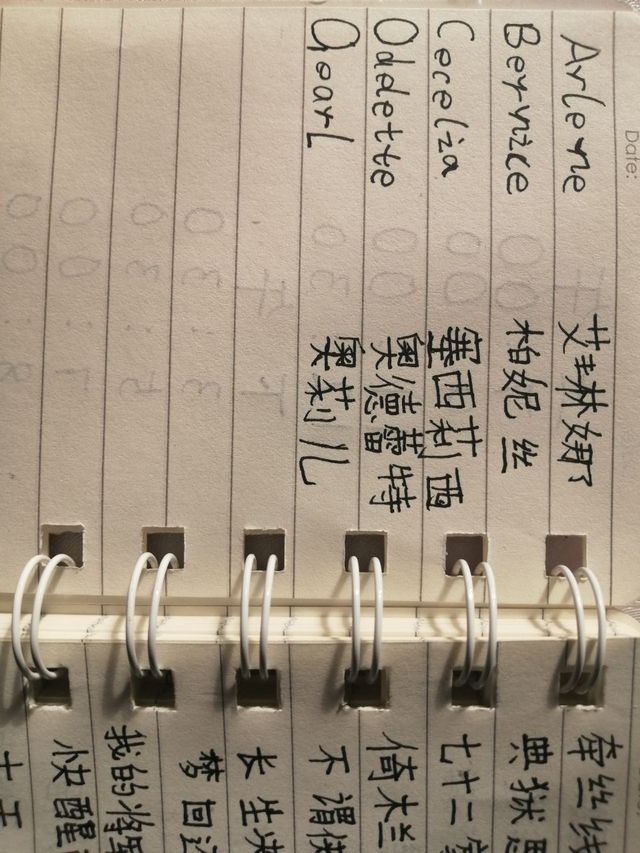 Date:
Arlene 艾琳娜
Bernice 柏妮丝
Cecelia 塞西莉西
Oddette 奥德蕾特
Oearl 奥莉儿
牵丝线
典狱
七十二
倚木兰
不谓侠
长生
梦回
我的将
快醒
十